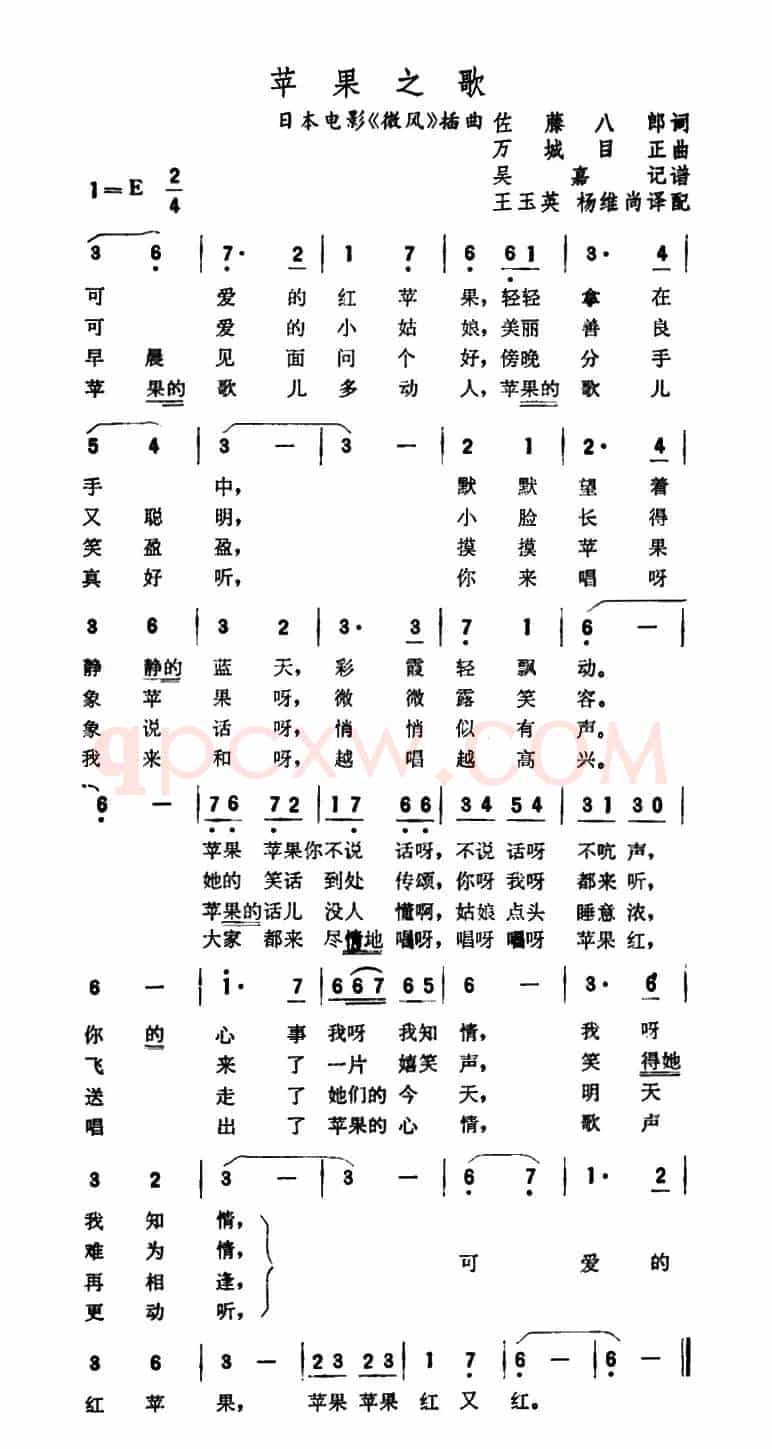 苹果之歌
日本电影《微风》插曲 佐藤八郎词
万城目正曲
吴嘉记谱
王玉英 杨维尚译配
1=E 2/4
3 6 | 7· 2 | 1 7 | 6 61 | 3· 4 |
可 爱的红苹 果,轻轻 拿在
可 爱的小姑 娘,美丽 善良
早晨见面问个好,傍晚 分手
苹果的歌儿多动人,苹果的歌儿
5 4 | 3 — | 3 — | 2 1 | 2· 4 |
手 中, 默默望着
又聪明, 小脸长得
笑盈盈, 摸摸苹果
真好听, 你来唱呀
3 6 | 3 2 | 3· 3 | 7 1 | 6 — |
静静的蓝天,彩霞轻飘动。
象苹果呀,微微露笑容。
象说话呀,悄悄似有声。
我来和呀,越唱越高兴。
qpcxw.com
6 — | 76 72 | 17 66 | 34 54 | 31 30 |
苹果 苹果你不说 话呀,不说话呀 不吭声,
她的 笑话 到处 传颂,你呀我呀 都来听,
苹果的话儿 没人 懂啊,姑娘点头 睡意浓,
大家 都来 尽情地 唱呀,唱呀唱呀 苹果红,
6 — | i· 7 | 667 65 | 6 — | 3· 6 |
你的心事我呀 我知情, 我呀
飞 来了一片 嬉笑声, 笑得她
送 走了她们的 今天, 明天
唱 出了苹果的 心情, 歌声
3 2 | 3 — | 3 — | 6 7 | 1· 2 |
我知情,
难为情,
可 爱的
再相逢,
更动听,
3 6 | 3 — | 23 23 | 1 7 | 6 — | 6 — ‖
红苹 果, 苹果 苹果 红又 红。